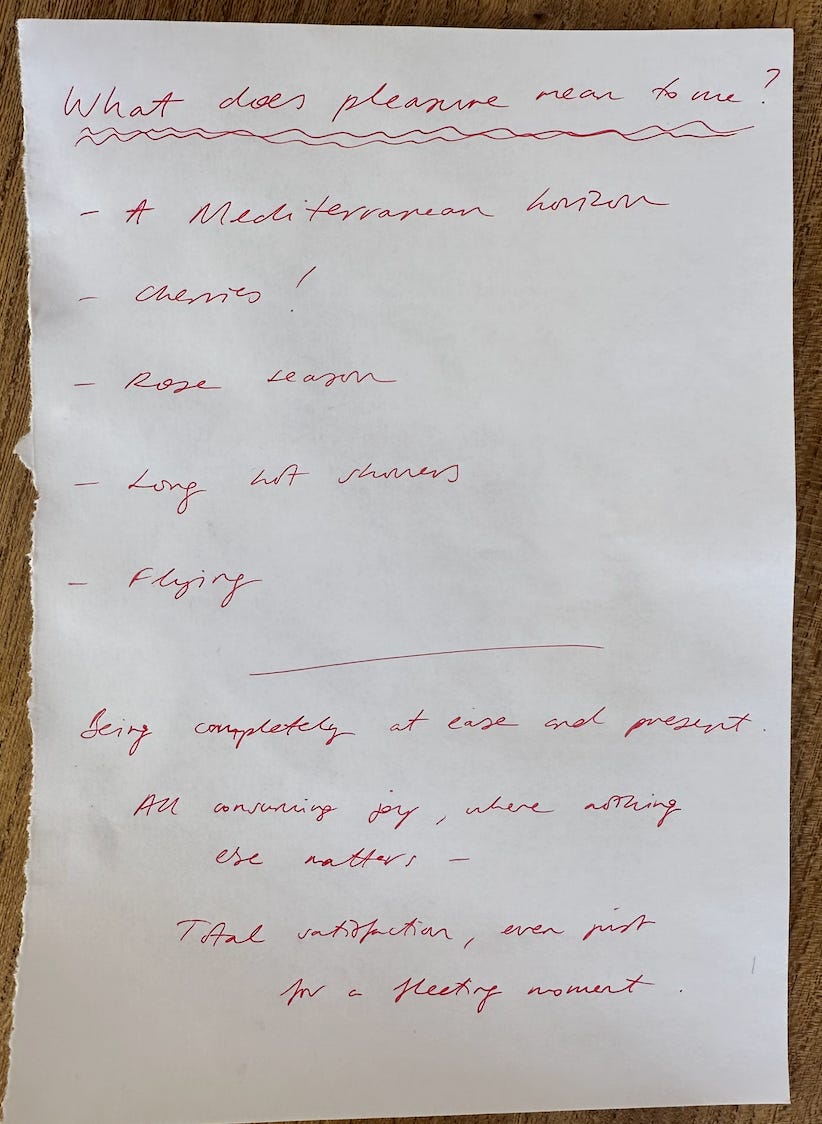 What does pleasure mean to me?
- A Mediterranean horizon
- Cherries!
- Rose season
- Long hot showers
- Flying
Being completely at ease and present.
All consuming joy, where nothing
else matters -
Total satisfaction, even just
for a fleeting moment.